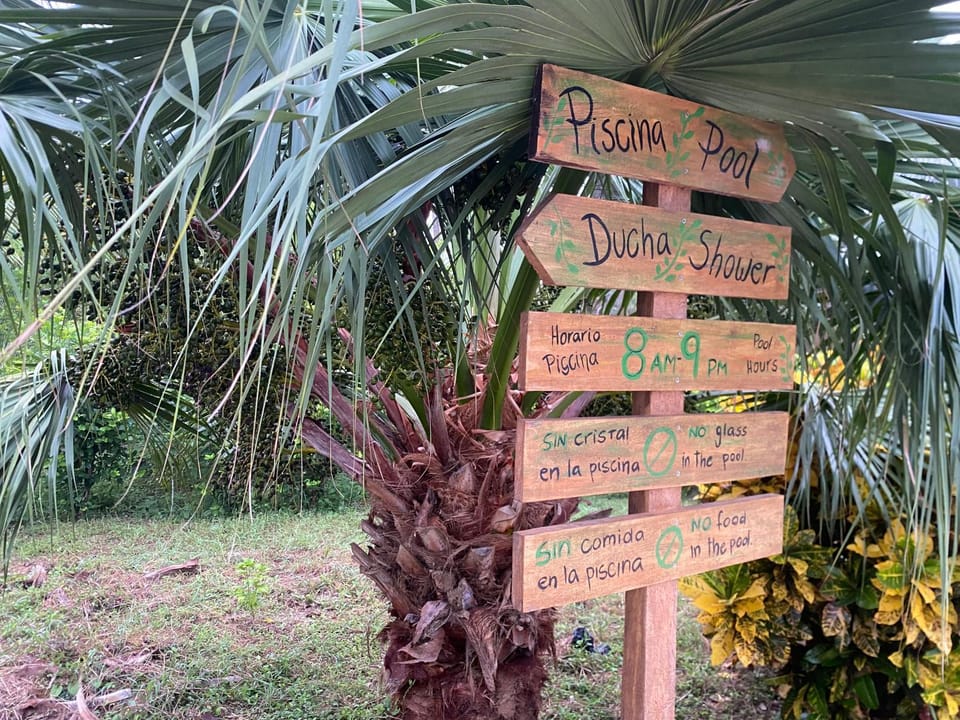 Piscina Pool
Ducha Shower
Horario
Piscina
8 AM-9 PM
Pool
Hours
SIN cristal
en la piscina
NO glass
in the pool.
Sin comida
en la piscina
NO Food
in the pool.